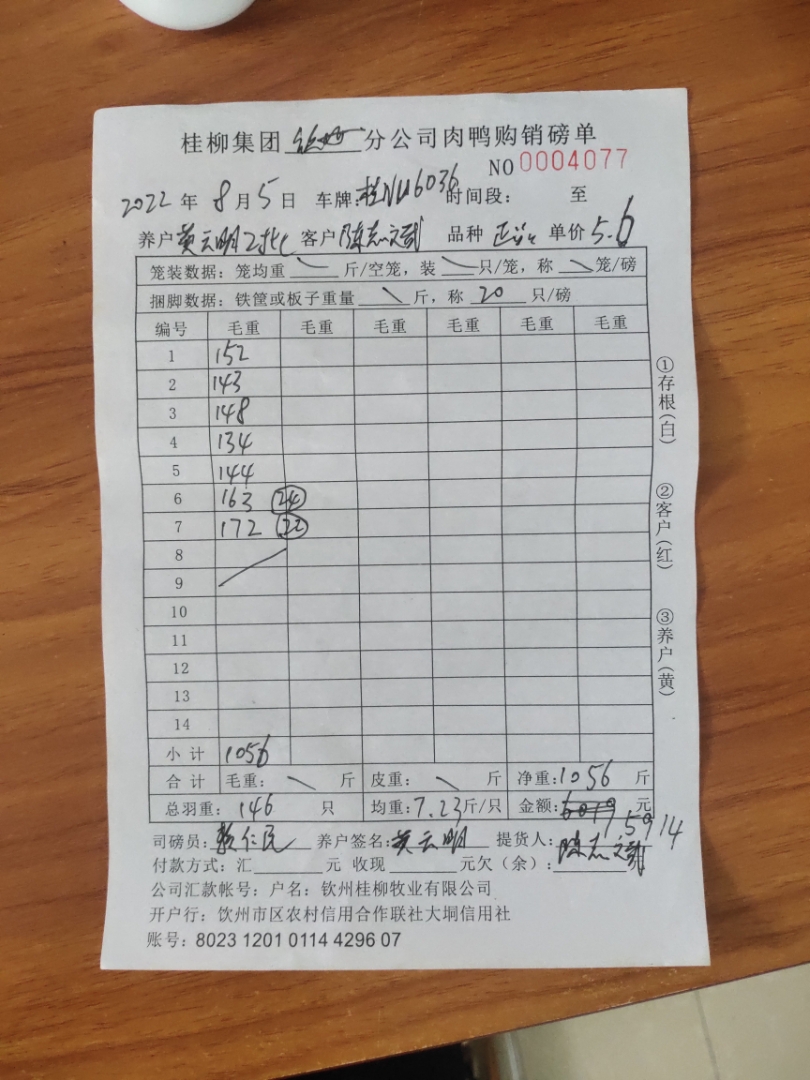 桂柳集团 钦州 分公司肉鸭购销磅单
NO 0004077
2022 年 8 月 5 日 车牌:桂NU6036 时间段: 至
养户 黄云明 客户 陈志文武 品种 单价 5.6
笼装数据: 笼均重 \ 斤/空笼, 装 \ 只/笼, 称 \ 笼/磅
捆脚数据: 铁筐或板子重量 \ 斤, 称 20 只/磅
编号 毛重 毛重 毛重 毛重 毛重 毛重
1 152
2 143
3 148
4 134
5 144
6 163 24
7 172 22
8
9
10
11
12
13
14
小 计 1056
合 计 毛重: \ 斤 皮重: \ 斤 净重: 1056 斤
总羽重: 146 只 均重: 7.23 斤/只 金额: 5914 元
司磅员: 赖仁民 养户签名: 黄云明 提货人: 陈志文武
付款方式: 汇 元 收现 元欠(余):
公司汇款帐号: 户名: 钦州桂柳牧业有限公司
开户行: 饮州市区农村信用合作联社大垌信用社
账号: 8023 1201 0114 4296 07
①存根(白)
②客户(红)
③养户(黄)